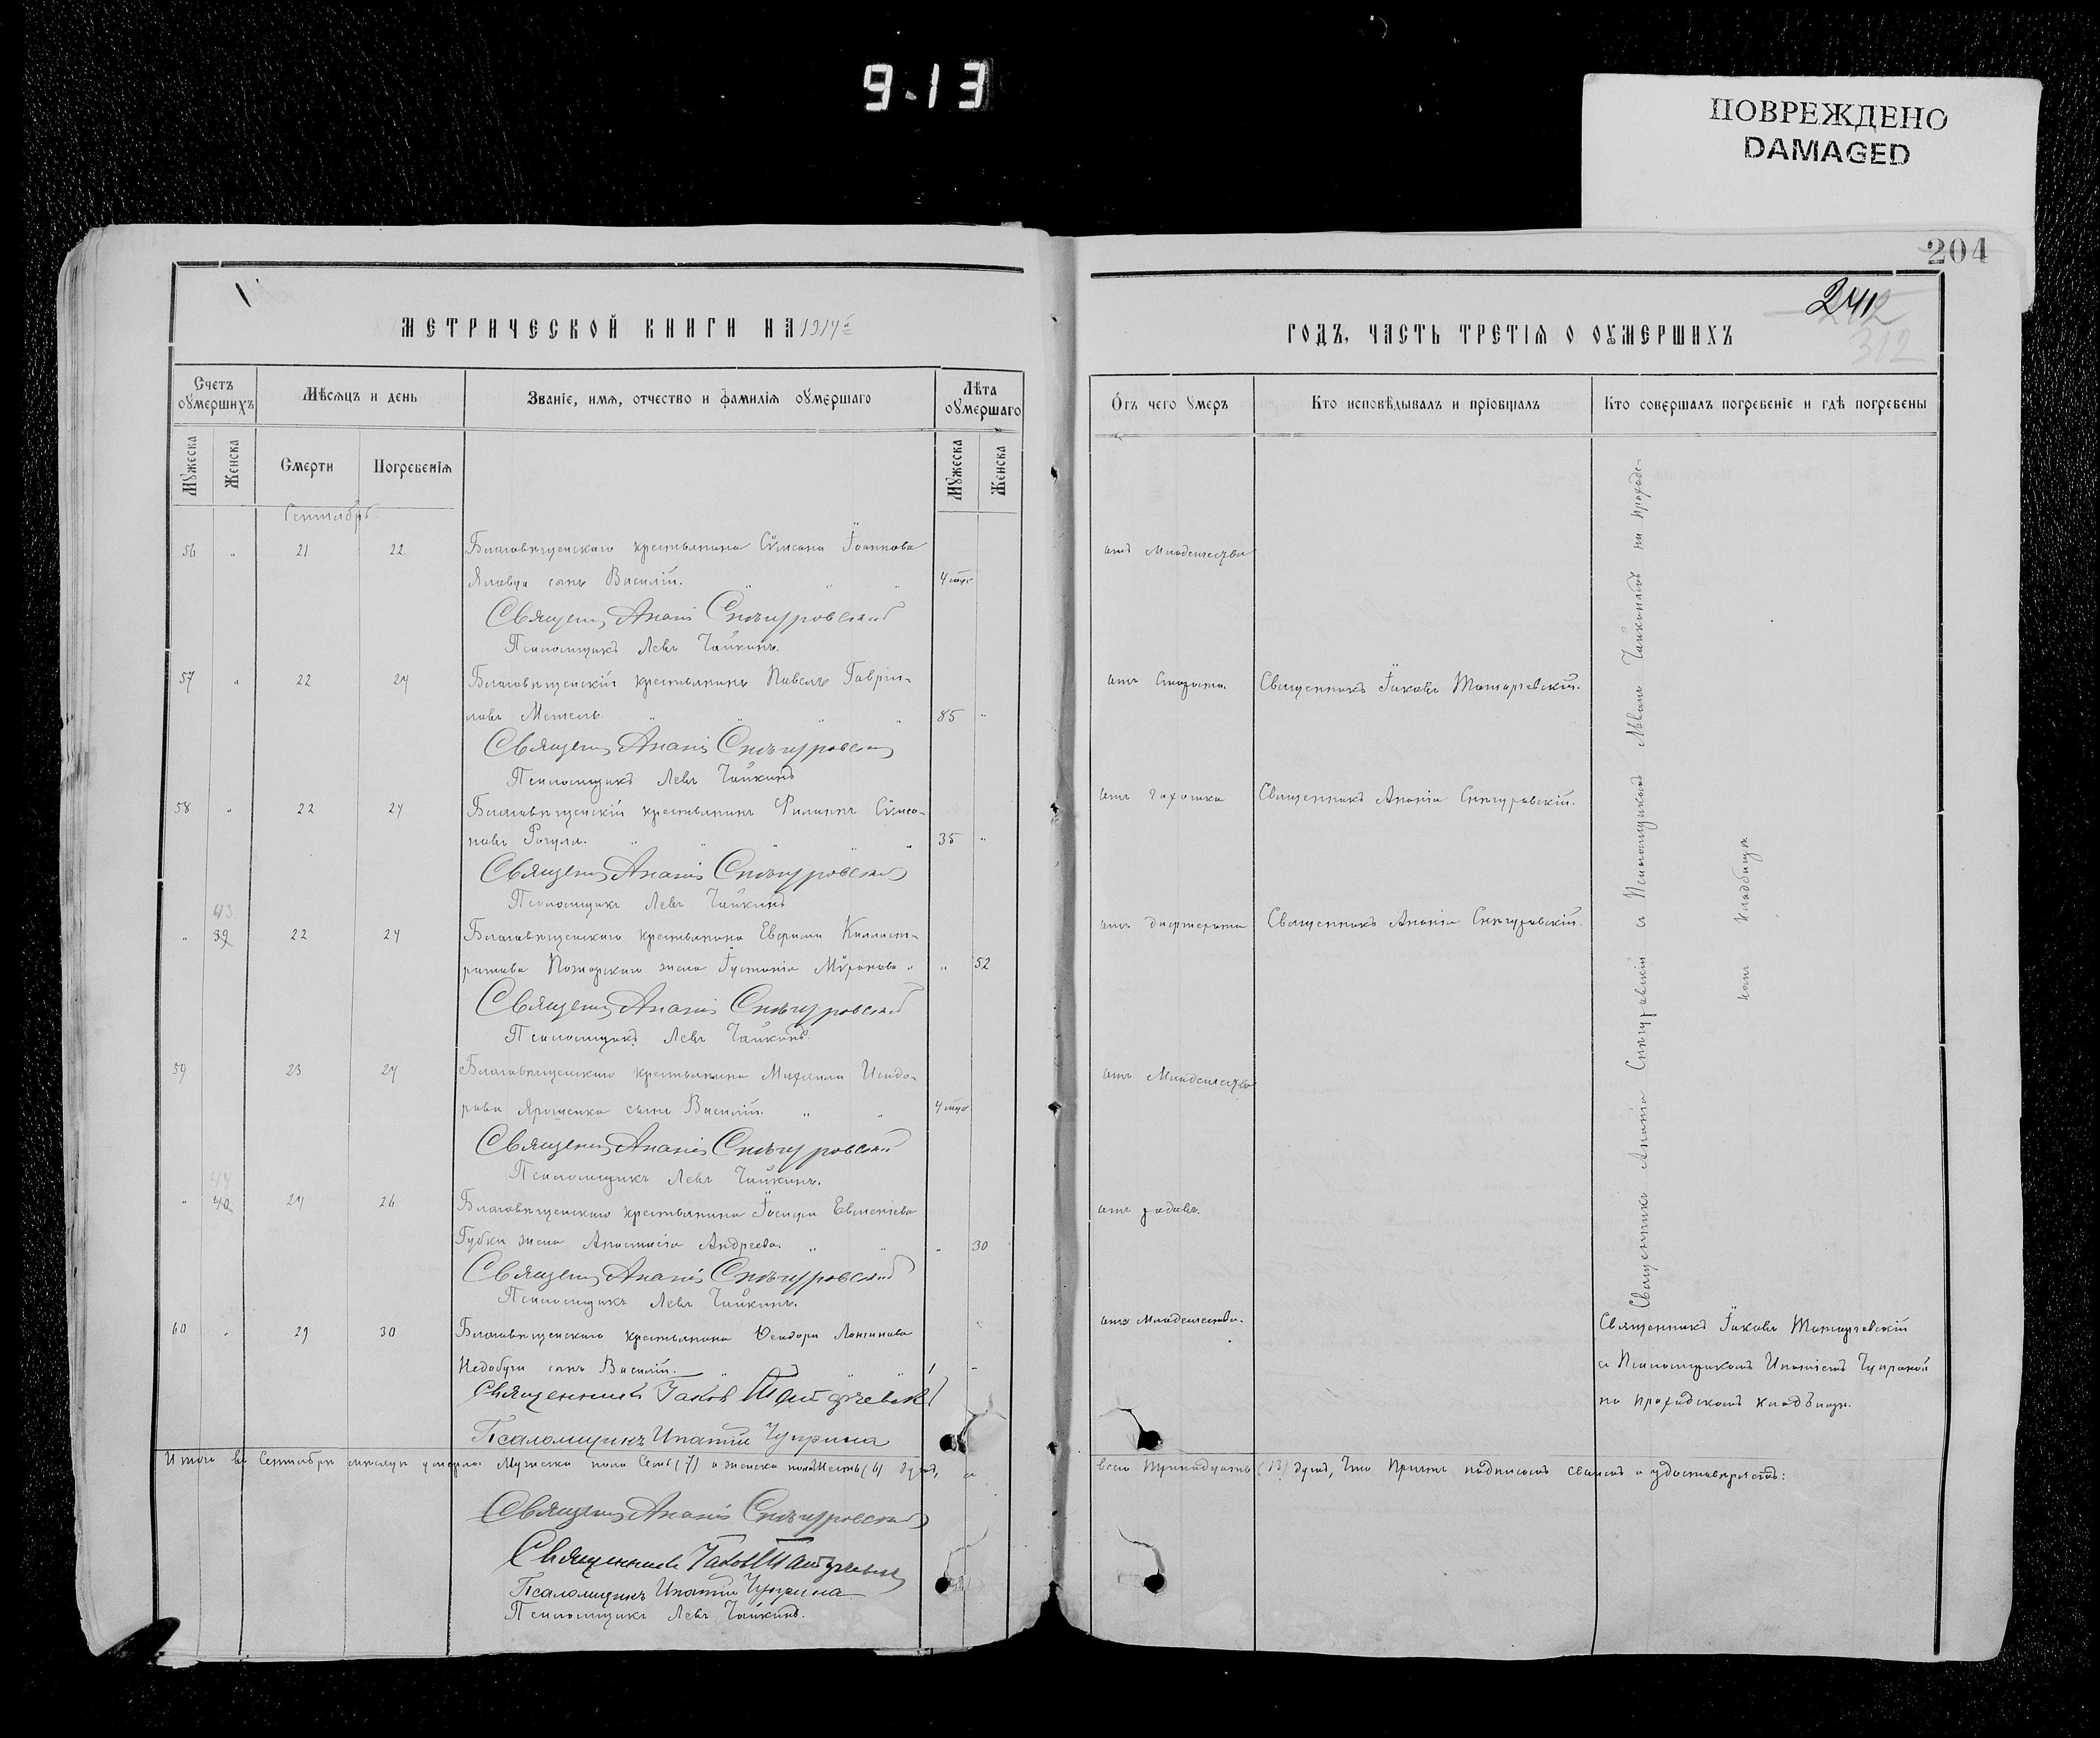 9.13
ПОВРЕЖДЕНО
DAMAGED
204
241
312
МЕТРИЧЕСКОЙ КНИГИ НА 1914й
ГОДЪ, ЧАСТЬ ТРЕТІЯ О ОУМЕРШИХЪ
Счетъ оумершихъ
Мѣсяцъ и день
Званіе, имя, отчество и фамилія оумершаго
Лѣта оумершаго
Отъ чего умеръ
Кто исповѣдывалъ и пріобщалъ
Кто совершалъ погребеніе и гдѣ погребены
Мужеска
Женска
Смерти
Погребенія
Мужеска
Женска
Сентябрь.
56 " 21 22 Благовѣщенскаго крестьянина Сѵмеона Іоаннова
отъ Младенчества
Яловца сынъ Василій. " " " 4 мѣс
Священ Ананія Снѣгуровскій
Псаломщикъ Левъ Чайкинъ.
57 " 22 24 Благовѣщенскій крестьянинъ Павелъ Гаврі-
отъ Старости. Священникъ Іаковъ
ловъ Метель " " " " 85 "
Священ Ананія Снѣгуровскій
Псаломщикъ Левъ Чайкинъ
58 " 22 24 Благовѣщенскій крестьянинъ Филиппъ Сѵмео-
отъ чахотки Священникъ Ананія Снѣгуровскій.
новъ Рогуля. " " " " " 35 "
Священ Ананія Снѣгуровскій
Псаломщикъ Левъ Чайкинъ
43.
" 39 22 24 Благовѣщенскаго крестьянина Евфимія Каллист-
отъ дифтерита Священникъ Ананія Снѣгуровскій.
ратова Пожарскаго жена Іустинія Миронова " " 52
Священ Ананія Снѣгуровскій
Псаломщикъ Левъ Чайкинъ.
59 23 24 Благовѣщенскаго крестьянина Михаила Исидо-
отъ Младенчества
рова Ярошенка сынъ Василій. " " 4 мѣс
Священ Ананія Снѣгуровскій
Псаломщикъ Левъ Чайкинъ.
44
" 40 24 26 Благовѣщенскаго крестьянина Іосифа Евменіева
отъ родовъ.
Губки жена Анастасія Андреева. " " " 30
Священ Ананія Снѣгуровскій
Псаломщикъ Левъ Чайкинъ.
Священникъ Ананія Снѣгуровскій съ Псаломщикомъ Львомъ Чайкинымъ на приход-
комъ кладбищѣ.
60 " 29 30 Благовѣщенскаго крестьянина Ѳеодора Логинова
отъ Младенчества.
Недобуги сынъ Василій. " " " 1 "
Священникъ Іаковъ
Псаломщикъ Ипатій Чуприна
Священникъ Іаковъ
съ Псаломщикомъ Ипатіемъ Чуприной
на приходскомъ кладбищѣ.
Итого въ Сентябрѣ мѣсяцѣ умерло: Мужеска пола Семь (7) а женска пола Шесть (6) душъ, а
всего тринадцать (13) душъ, что Причтъ подписомъ своимъ и удостовѣряетъ:
Священ Ананія Снѣгуровскій
Священникъ Іаковъ
Псаломщикъ Ипатій Чуприна
Псаломщикъ Левъ Чайкинъ.